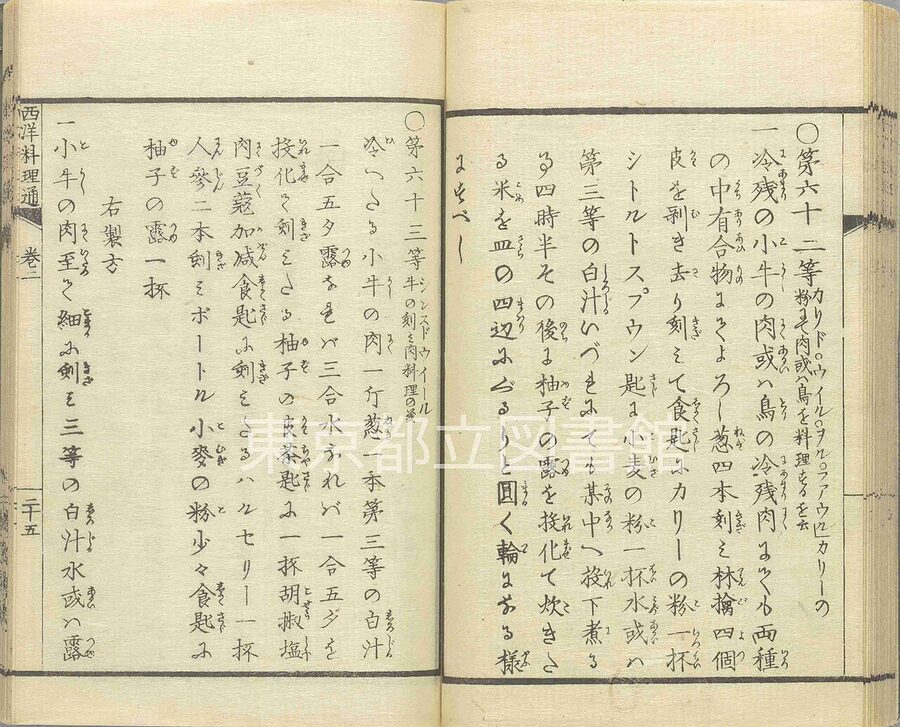 ○第六十二等カリド、ウイル、ヲル、ファウル
カリーの粉にて肉或ハ鳥を料理するを云
一冷残の小牛の肉或ハ鳥の冷残肉にても両種
の中有合物にてよろし葱四本刻ミ林檎四個
皮を剥き去り刻ミて食匙にカリーの粉一杯
シトルトスプウン匙に小麦の粉一杯水或ハ
第三等の白汁いづれにても其中へ投下煮る
る米を皿の四辺にぐるりと圓く輪になる様
にすべし
○第六十三等シンスドウイール
牛の刻ミ肉料理の義
冷へたる小牛の肉一斤葱一本第三等の白汁
一合五夕露なれバ三合水なれバ一合五夕を
投化て刻ミたる柚子の皮茶匙に一杯胡椒塩
肉豆蔲加減食匙に刻ミたるハルセリー一杯
人參二本刻ミボートル小麥の粉少々食匙に
柚子の露一杯
右製方
一小牛の肉至て細に刻ミ三等の白汁水或ハ露
西洋料理通
巻二
二十五
東京都立図書館